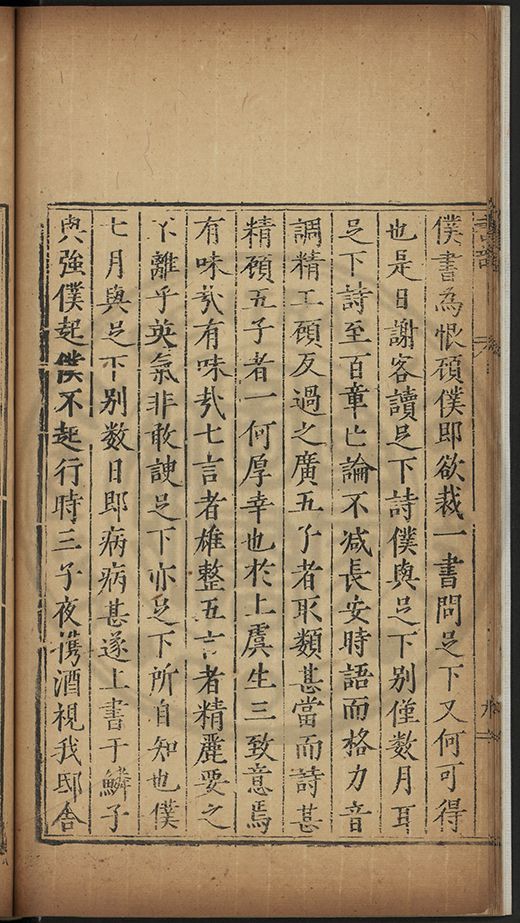 僕書為恨碩僕即欲裁一書問足下又何可得
也是日謝客讀足下詩僕與足下別僅數月耳
足下詩至百章亡論不减長安時語而格力音
調精工碩反過之廣五子者取類甚當而詩甚
精碩五子者一何厚幸也於上虞生三致意焉
有味㢤有味㢤七言者雄整五言者精麗要之
不離乎英氣非敢諛足下亦足下所自知也僕
七月與足下別数日即病病甚遂上書于鱗子
與強僕起僕不起行時三子夜携酒視我邸舎